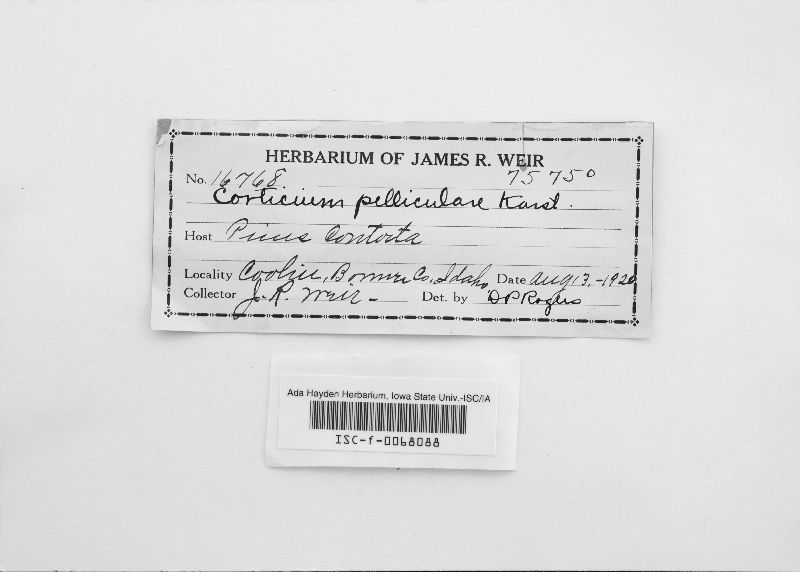 HERBARIUM OF JAMES R. WEIR
No. 16768. 75750
Corticium pelliculare Karst.
Host Pinus Contorta
Locality Coolin, Bonner Co. Idaho Date Aug 13, -1920
Collector J. R. Weir - Det. by D P Rogers
Ada Hayden Herbarium, Iowa State Univ.-ISC/IA
ISC-f-0068088